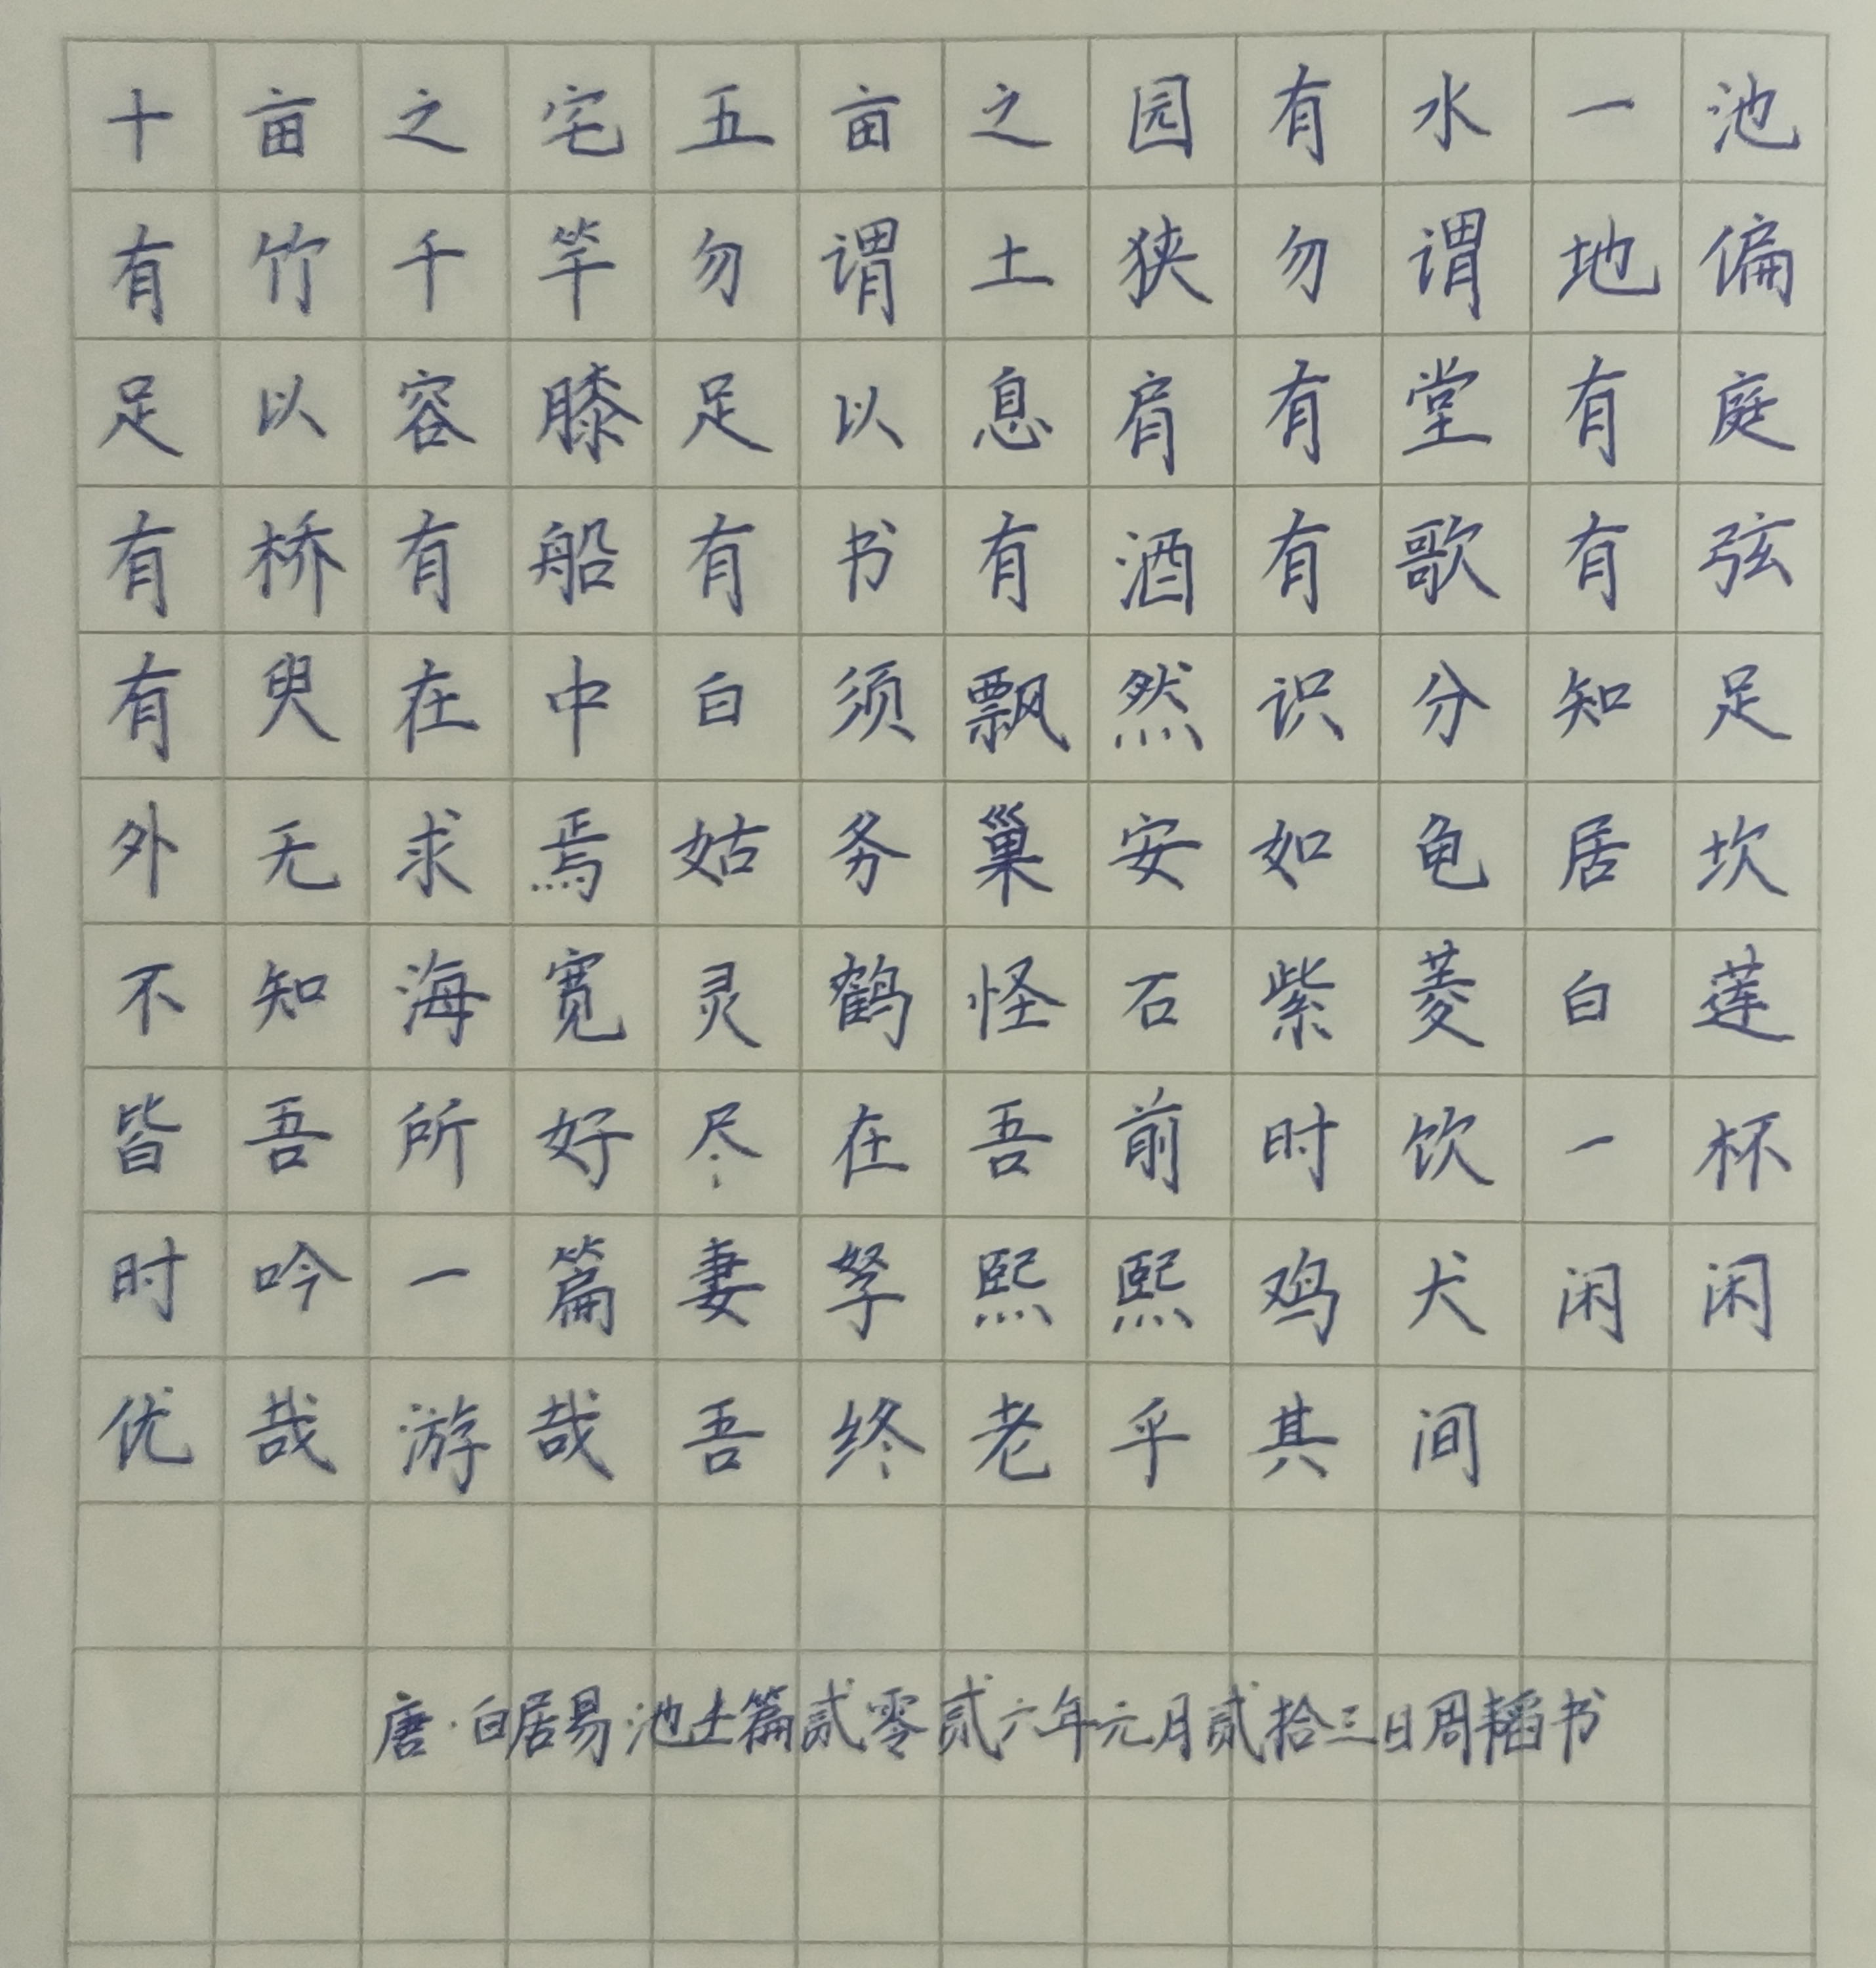 十亩之宅五亩之园有水一池
有竹千竿勿谓土狭勿谓地偏
足以容膝足以息肩有堂有庭
有桥有船有书有酒有歌有弦
有叟在中白须飘然识分知足
外无求焉姑务巢安如龟居坎
不知海宽灵鹤怪石紫菱白莲
皆吾所好尽在吾前时饮一杯
时吟一篇妻孥熙熙鸡犬闲闲
优哉游哉吾终老乎其间
唐·白居易池上篇贰零贰六年元月贰拾三日周韬书